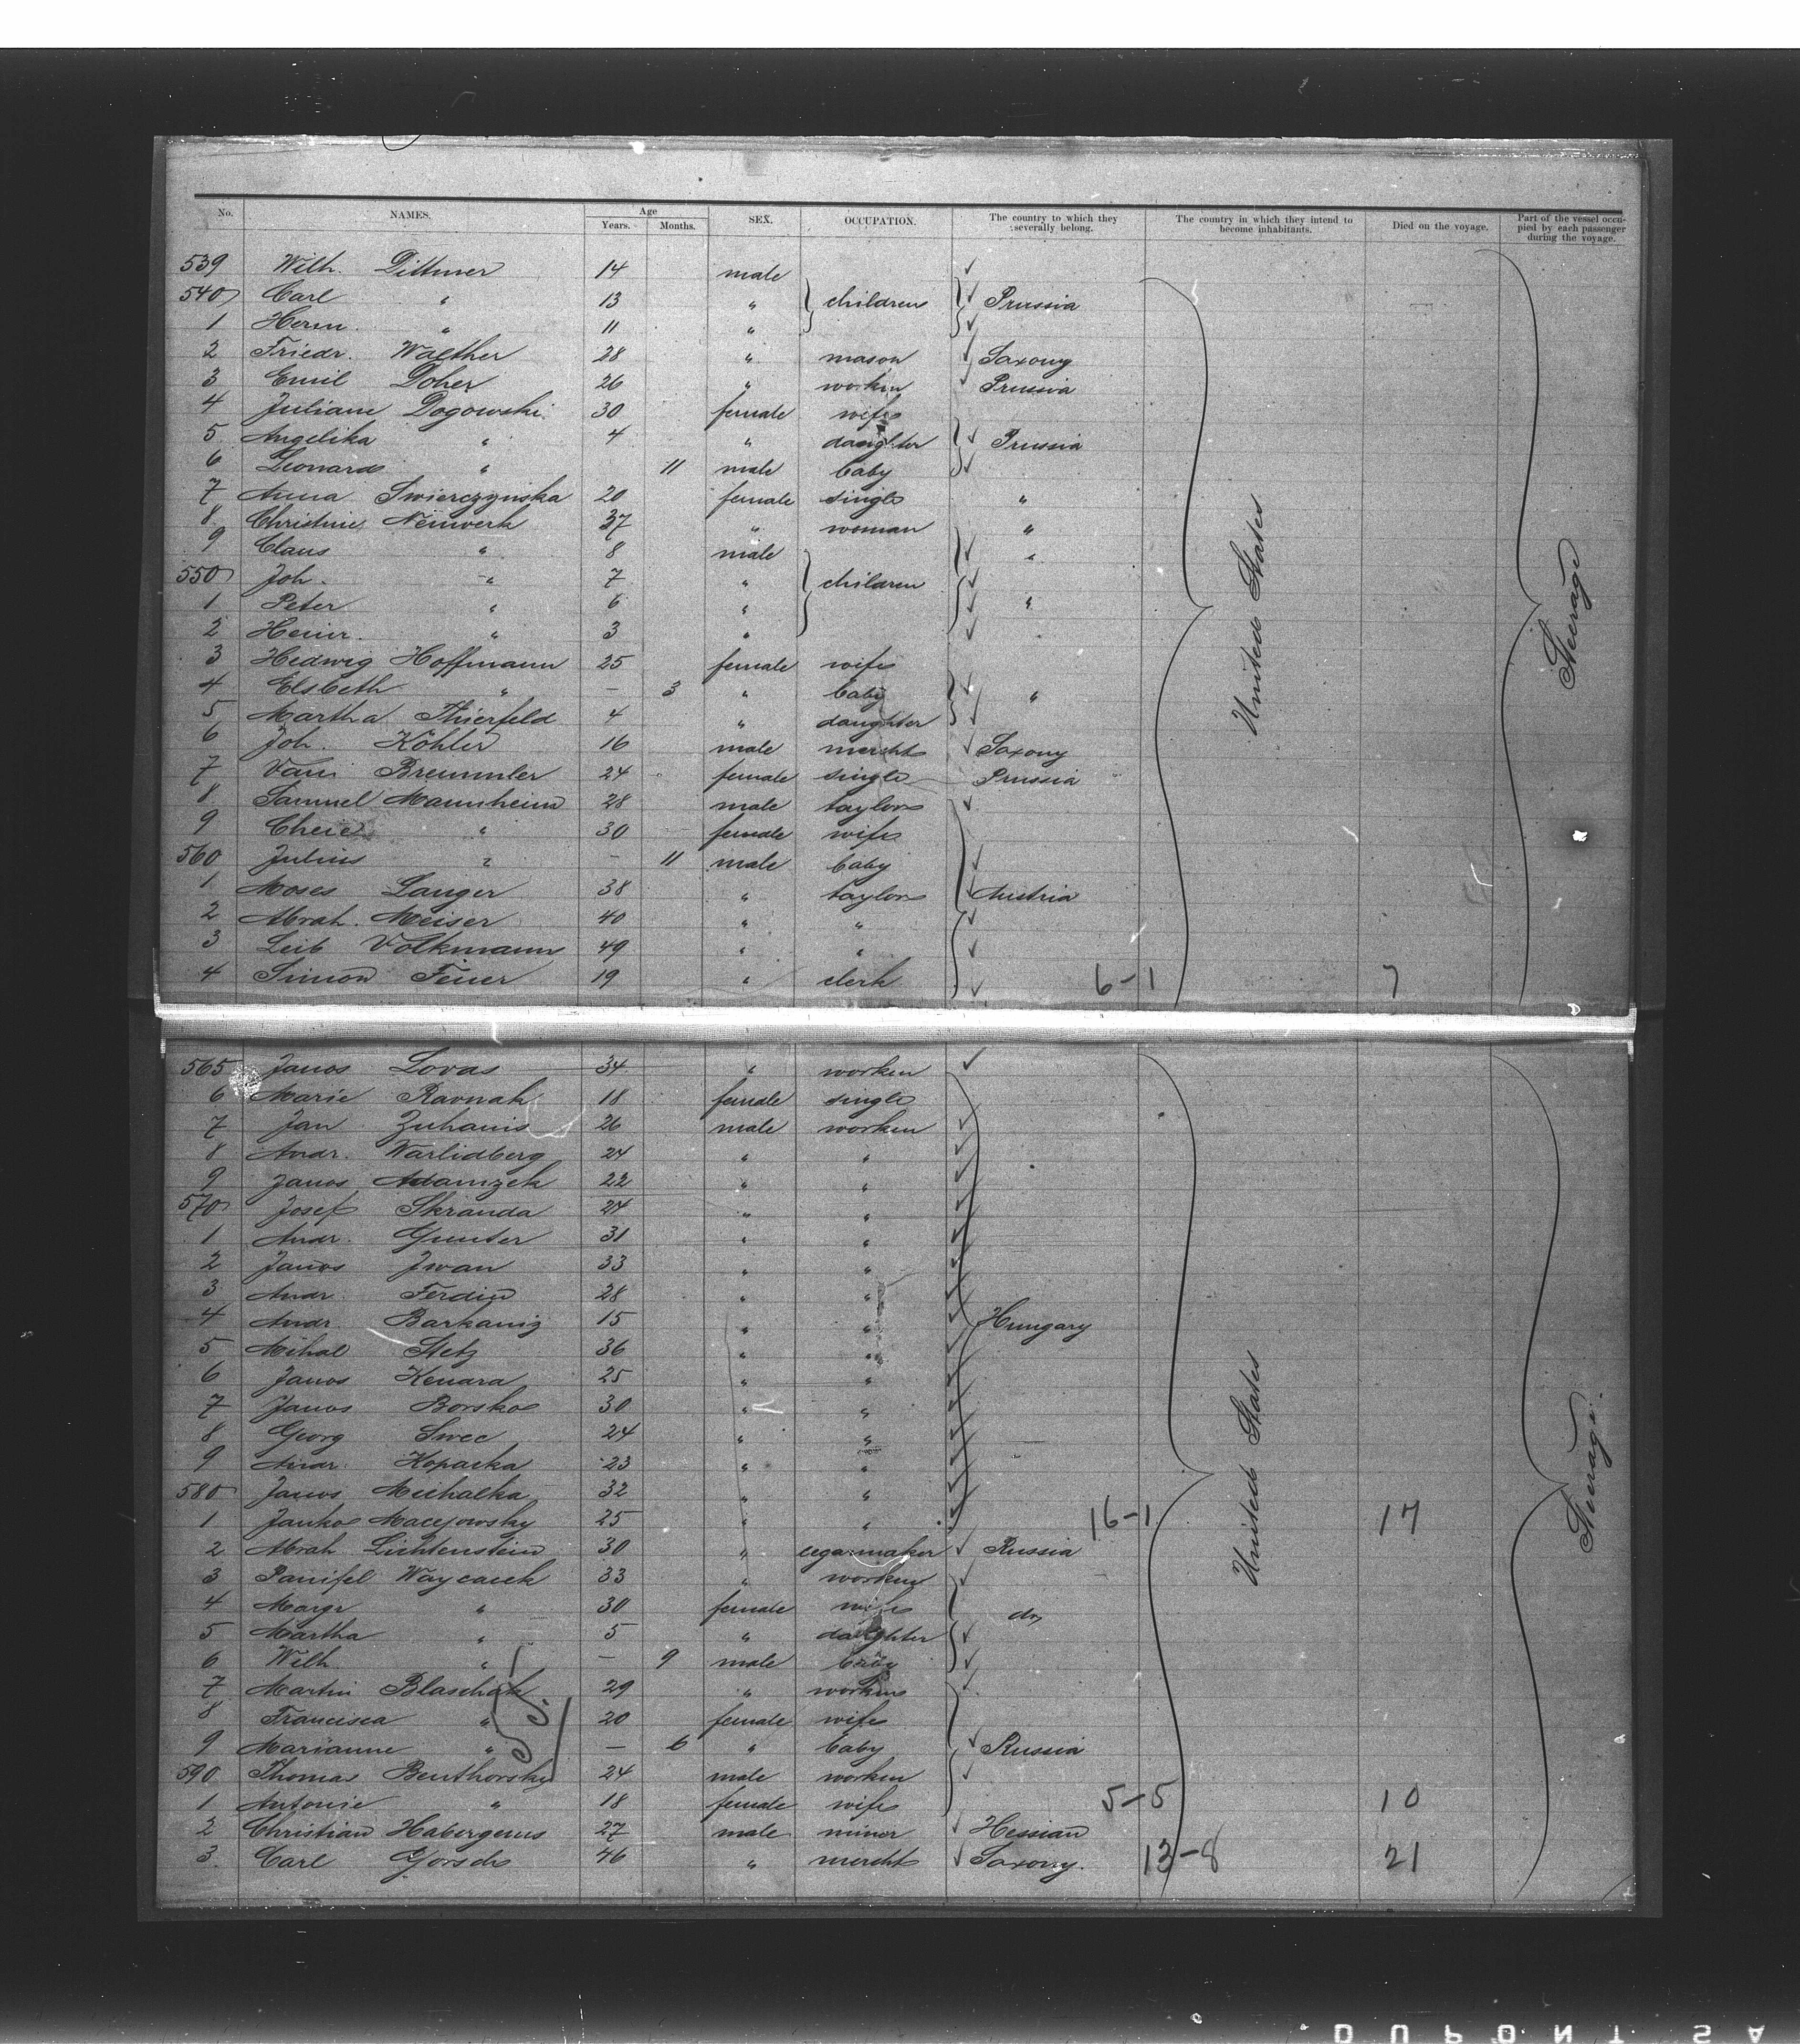 No. NAMES. Age Years. Months. SEX. OCCUPATION. The country to which they severally belong. The country in which they intend to become inhabitants. Died on the voyage. Part of the vessel occupied by each passenger during the voyage.
539 Wilh. Dittmer 14 male
540 Carl " 13 " children Prussia
1 Herm. " 11 "
2 Friedr. Walther 28 " mason Saxony
3 Emil Doher 26 " worken Prussia
4 Juliane Dogowski 30 female wife
5 Angelika " 4 " daughter Prussia
6 Leonard " 11 male baby
7 Anna Swierczynska 20 female single "
8 Christine Neuwerk 37 " woman "
9 Claus " 8 male "
550 Joh. " 7 " children
1 Peter " 6 " "
2 Heinr. " 3 "
3 Hedwig Hoffmann 25 female wife
4 Elsbeth " — 3 " baby "
5 Martha Thierfeld 4 " daughter
6 Joh. Köhler 16 male mercht Saxony
7 Bremmler 24 female single Prussia
8 Samuel Mannheim 28 male taylor
9 " 30 female wife
560 Julius " — 11 male baby
1 Moses Langer 38 " taylor Austria
2 Abrah. Meiser 40 " "
3 Leib Volkmann 49 " "
4 Simon Feuer 19 " clerk 6-1 7
United States
Steerage
565 Janos Lovas 34 " worken
6 Marie Ravnak 18 female single
7 Jan Zuhanis 26 male worken
8 Andr. Warlidberg 24 " "
9 Janos Adamzek 22 " "
570 Josef Skranda 24 " "
1 Andr. Gunter 31 " "
2 Janos Iwan 33 " "
3 Andr. Ferdin 28 " "
4 Andr. Barkaniz 15 " " Hungary
5 Mihal Stetz 36 " "
6 Janos Kenara 25 " "
7 Janos Borsko 30 " "
8 Georg Swec 24 " "
9 Andr. Kopacka 23 " "
580 Janos Michalka 32 " "
1 Janko Macejowsky 25 " " 16-1 17
2 Abrah. Lichtenstein 30 " cegarmaker Russia
3 Waycacek 33 " worken
4 Margr " 30 female wife do
5 Martha " 5 " daughter
6 Wilh " — 9 male baby
7 Martin Blaschak 29 " worken
8 Francisca " 20 female wife
9 Marianne " — 6 " baby Russia
590 Thomas Benthorsky 24 male worken
1 Antonie " 18 female wife 5-5 10
2 Christian Habergerus 27 male minor Hessian
3. Carl Gorsch 46 " mercht Saxony. 13-8 21
United States
Steerage.
DUPONT SA